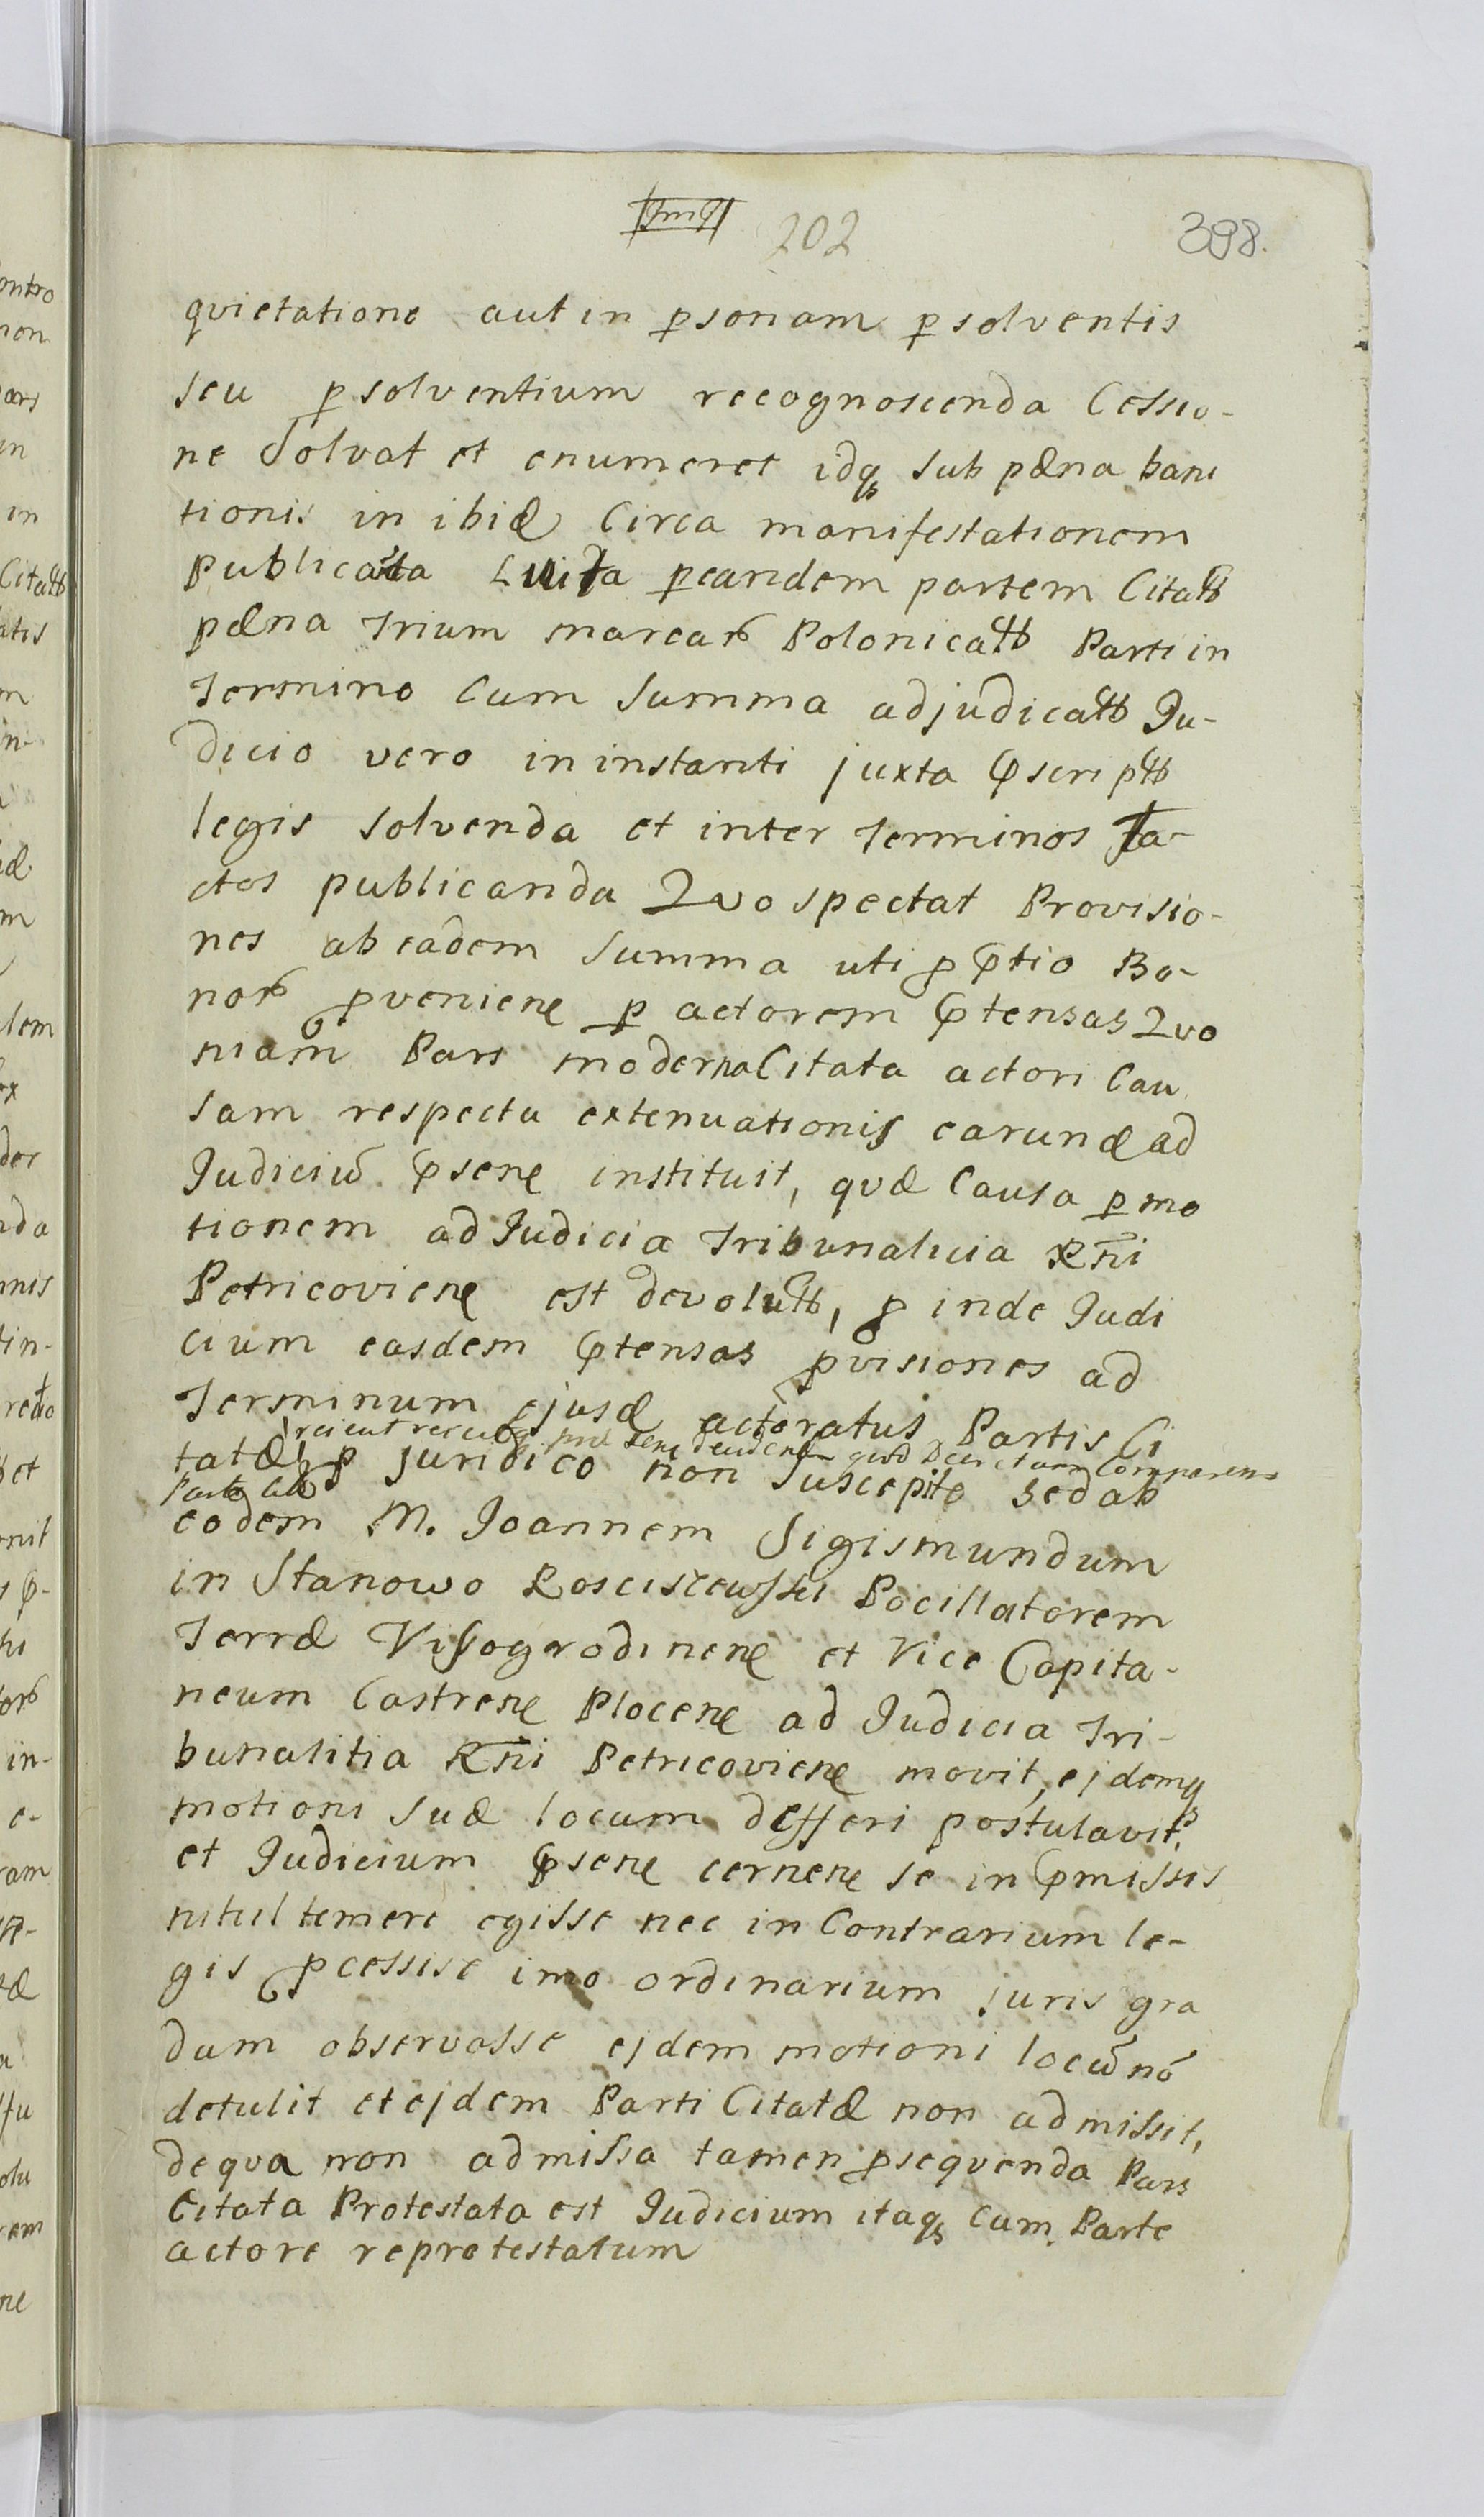 202
398.
qvietatione aut in psonam psolventis
seu psolventium recognoscenda Cessio-
ne Solvat et enumeret idq sub pæna bani
tionis in ibid Circa manifestationem
publicata Luita peandem partem Citat
pæna Trium marcar Polonicat Parti in
Termino Cum Summa adjudicat Ju-
dicio vero in instanti juxta pscript
legis solvenda et inter Terminos Ta-
ctos publicanda Qvo spectat Provisio-
nes ab eadem Summa uti pptio Bo-
nor pveniens p actorem ptensas Qvo
niam Pars moderna Citata actori Cau
sam respectu extenuationis earund ad
Judiciū psens instituit, qvæ Causa p mo
tionem ad Judicia Tribunalicia Rni
Petricoviens est devolut, p inde Judi
cium easdem ptensas pvisiones ad
Terminum ejusd actoratus Partis Ci
tatæ p juridico non suscepito sed ab
Parte
eodem M. Joannem Sigismundum
in Stanowo Rosciszewski Pocillatorem
Terræ Visogrodinens et Vice Capita-
neum Castrens Plocens ad Judicia Tri-
bunalitia Rni Petricoviens movit, ejdemq
motioni suæ locum defferi postulavit.
et Judicium psens cernens se in pmissis
nihil temere egisse nec in Contrarium le-
gis pcessise imo ordinarium juris gra
dum observasse ejdem motioni locū nō
detulit et ejdem Parti Citatæ non admissit,
de qva non admissa tamen pseqvenda Pars
Citata Protestata est Judicium itaq Cum Parte
actore reprotestatum